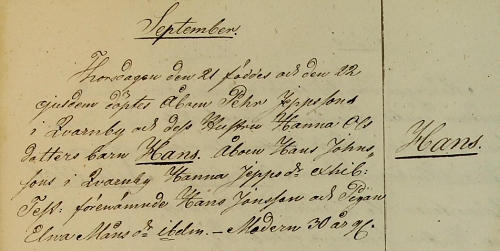 September.
Thorsdagen den 21 föddes och den 22
ejusdem döptes Åboen Pehr Jeppssons
i Qvarnby och dess Hustru Hanna Ols
datters barn Hans. Aboen Hans Johns-
sons i Qvarnby Hanna Jeppsdr exhib:
Test: förenämnde Hans Jönsson och Pigan
Elna Månsdr ibdm. – Modern 30 år gl.
Hans.